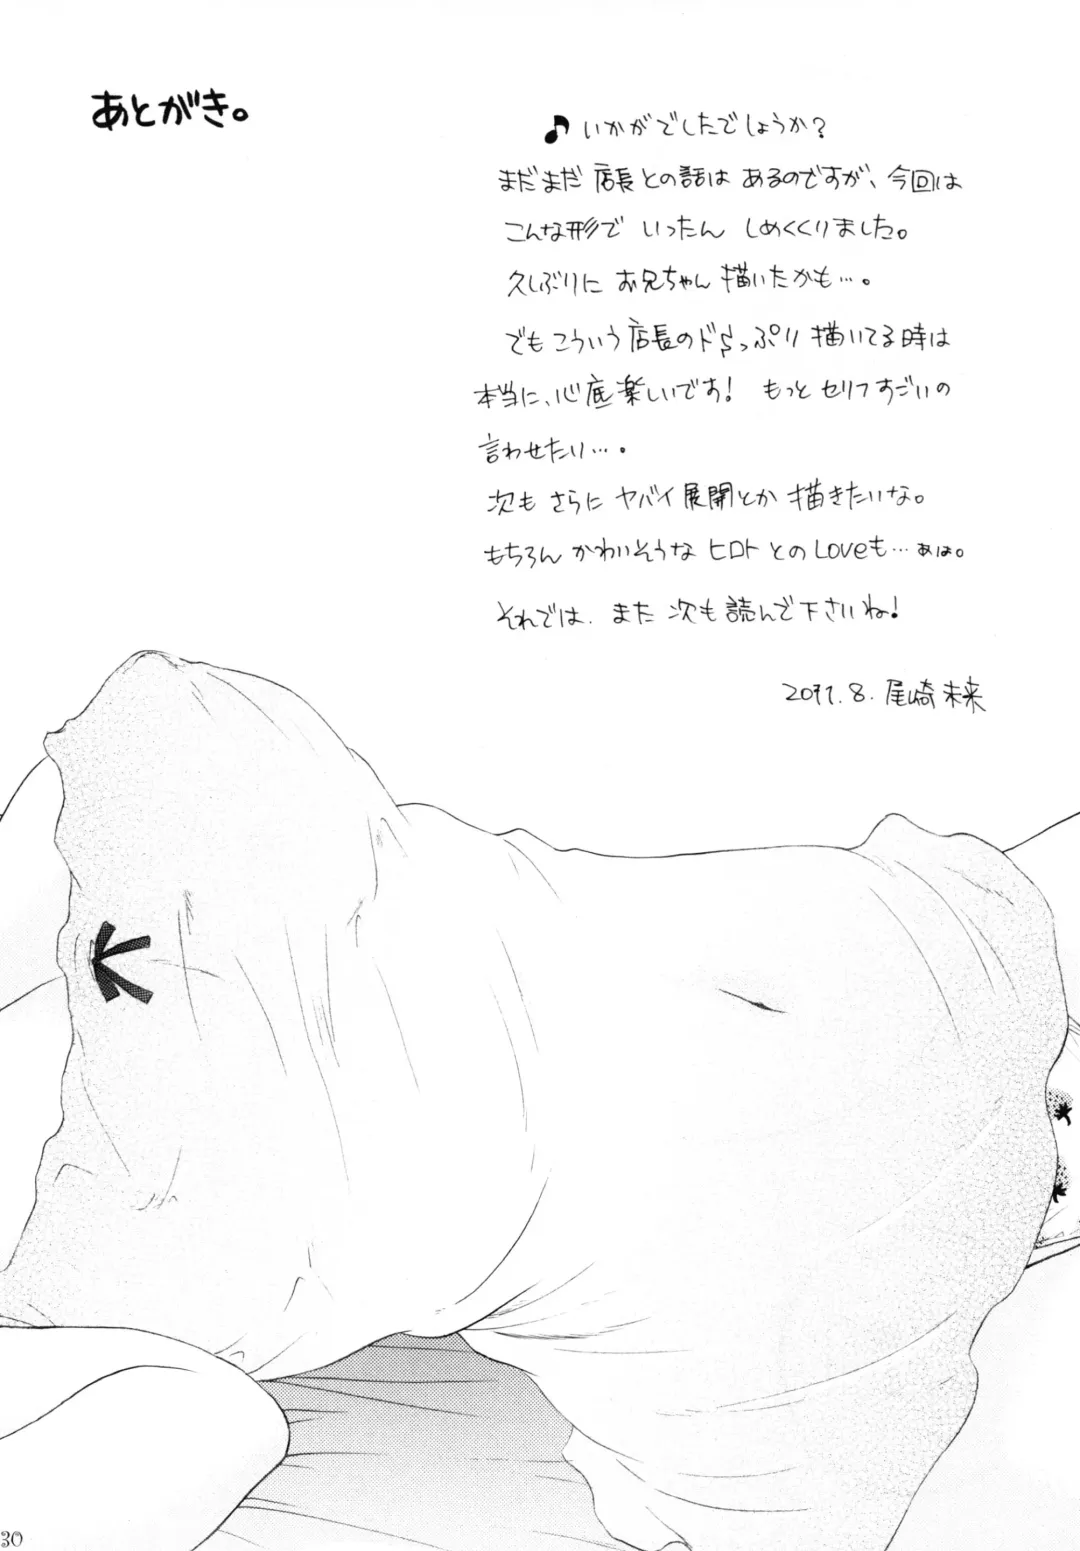 あとがき。
♪いかがでしたでしょうか？
まだまだ店長との話はあるのですが、今回は
こんな形でいったんしめくくりました。
久しぶりにお兄ちゃん描いたかも…。
でもこういう店長のドSっぷり描いてる時は
本当に、心底楽しいです！もっとセリフすごいの
言わせたい…。
次もさらにヤバイ展開とか描きたいな。
もちろんかわいそうなヒロトとのLoveも…あは。
それでは、また次も読んで下さいね！
2011.8.尾崎未来
30